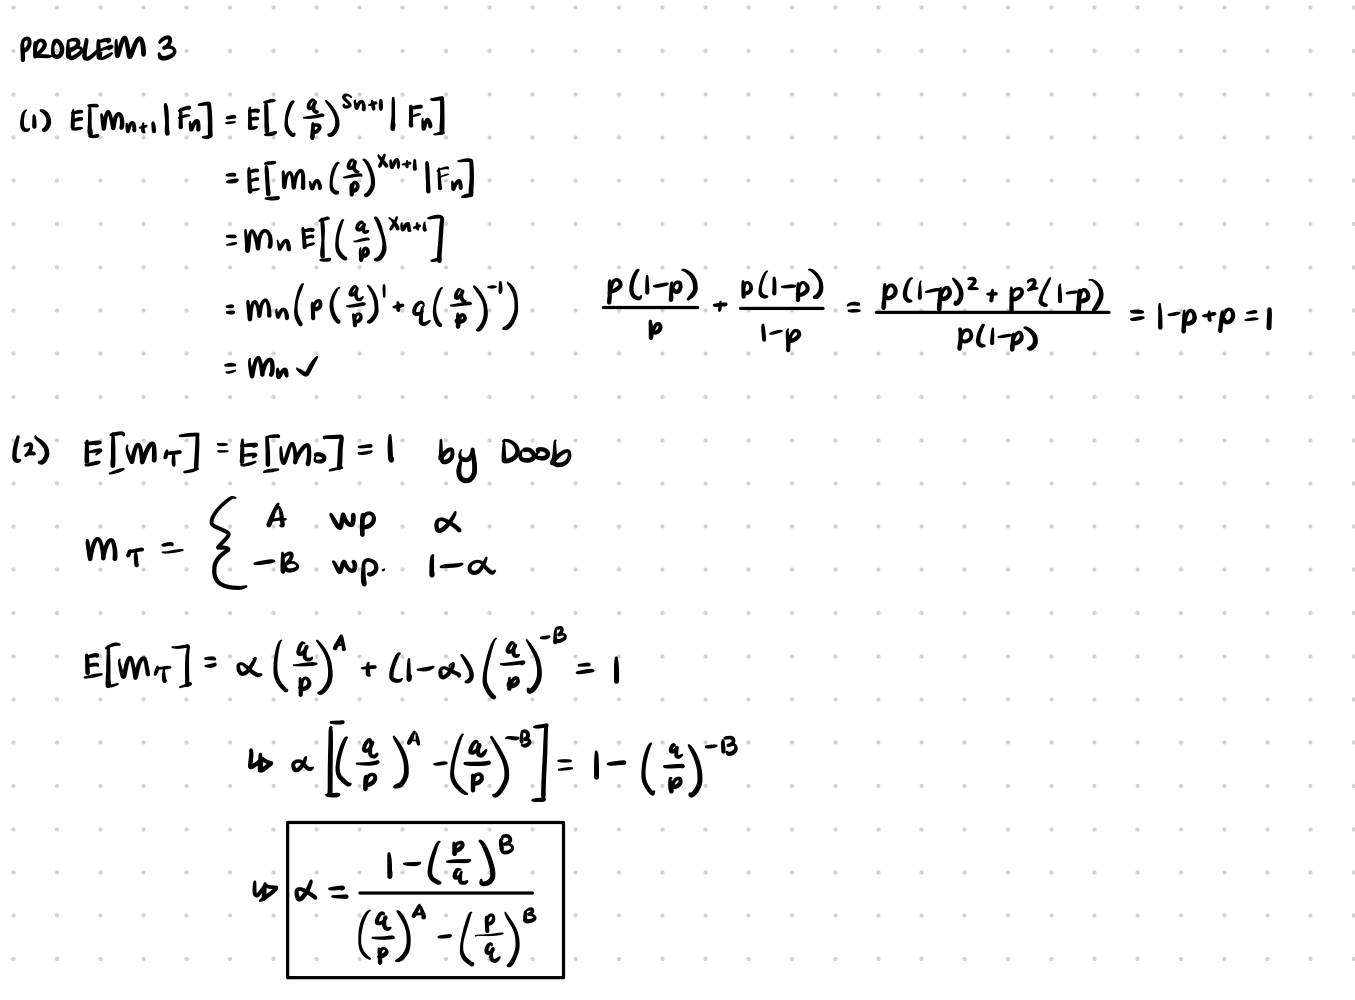 PROBLEM 3
(1) E[m_{n+1} | F_n] = E[(q/p)^{S_{n+1}} | F_n]
= E[m_n (q/p)^{X_{n+1}} | F_n]
= m_n E[(q/p)^{X_{n+1}}]
= m_n (p(q/p)^1 + q(q/p)^{-1})
p(1-p)/p + p(1-p)/1-p = p(1-p)^2 + p^2(1-p)/p(1-p) = 1-p+p = 1
= m_n ✓
(2) E[m_T] = E[m_0] = 1 by Doob
m_T = { A wp α
-B wp. 1-α
E[m_T] = α(q/p)^A + (1-α)(q/p)^{-B} = 1
↳ α[(q/p)^A - (q/p)^{-B}] = 1 - (q/p)^{-B}
↳ α = 1-(p/q)^B / (q/p)^A - (p/q)^B